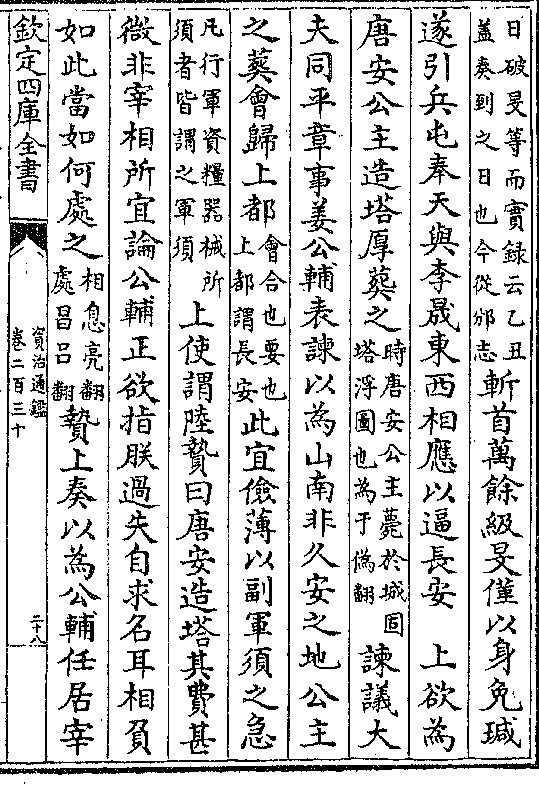 日破旻等而實録云乙丑
盖奏到之日也今從邠志
斬首萬餘級旻僅以身免瑊
遂引兵屯奉天與李晟東西相應以逼長安　上欲為
唐安公主造塔厚葬之
時唐安公主薨於城固
塔浮圖也為于偽翻
諫議大
夫同平章事姜公輔表諫以為山南非久安之地公主
之葬會歸上都
會合也要也
上都謂長安
此宜儉薄以副軍須之急
凡行軍資糧器械所
須者皆謂之軍須
上使謂陸贄曰唐安造塔其費甚
微非宰相所宜論公輔正欲指朕過失自求名耳相負
如此當如何處之
相息亮翻
處昌吕翻
贄上奏以為公輔任居宰
欽定四庫全書
資治通鑑
卷二百三十
二十八